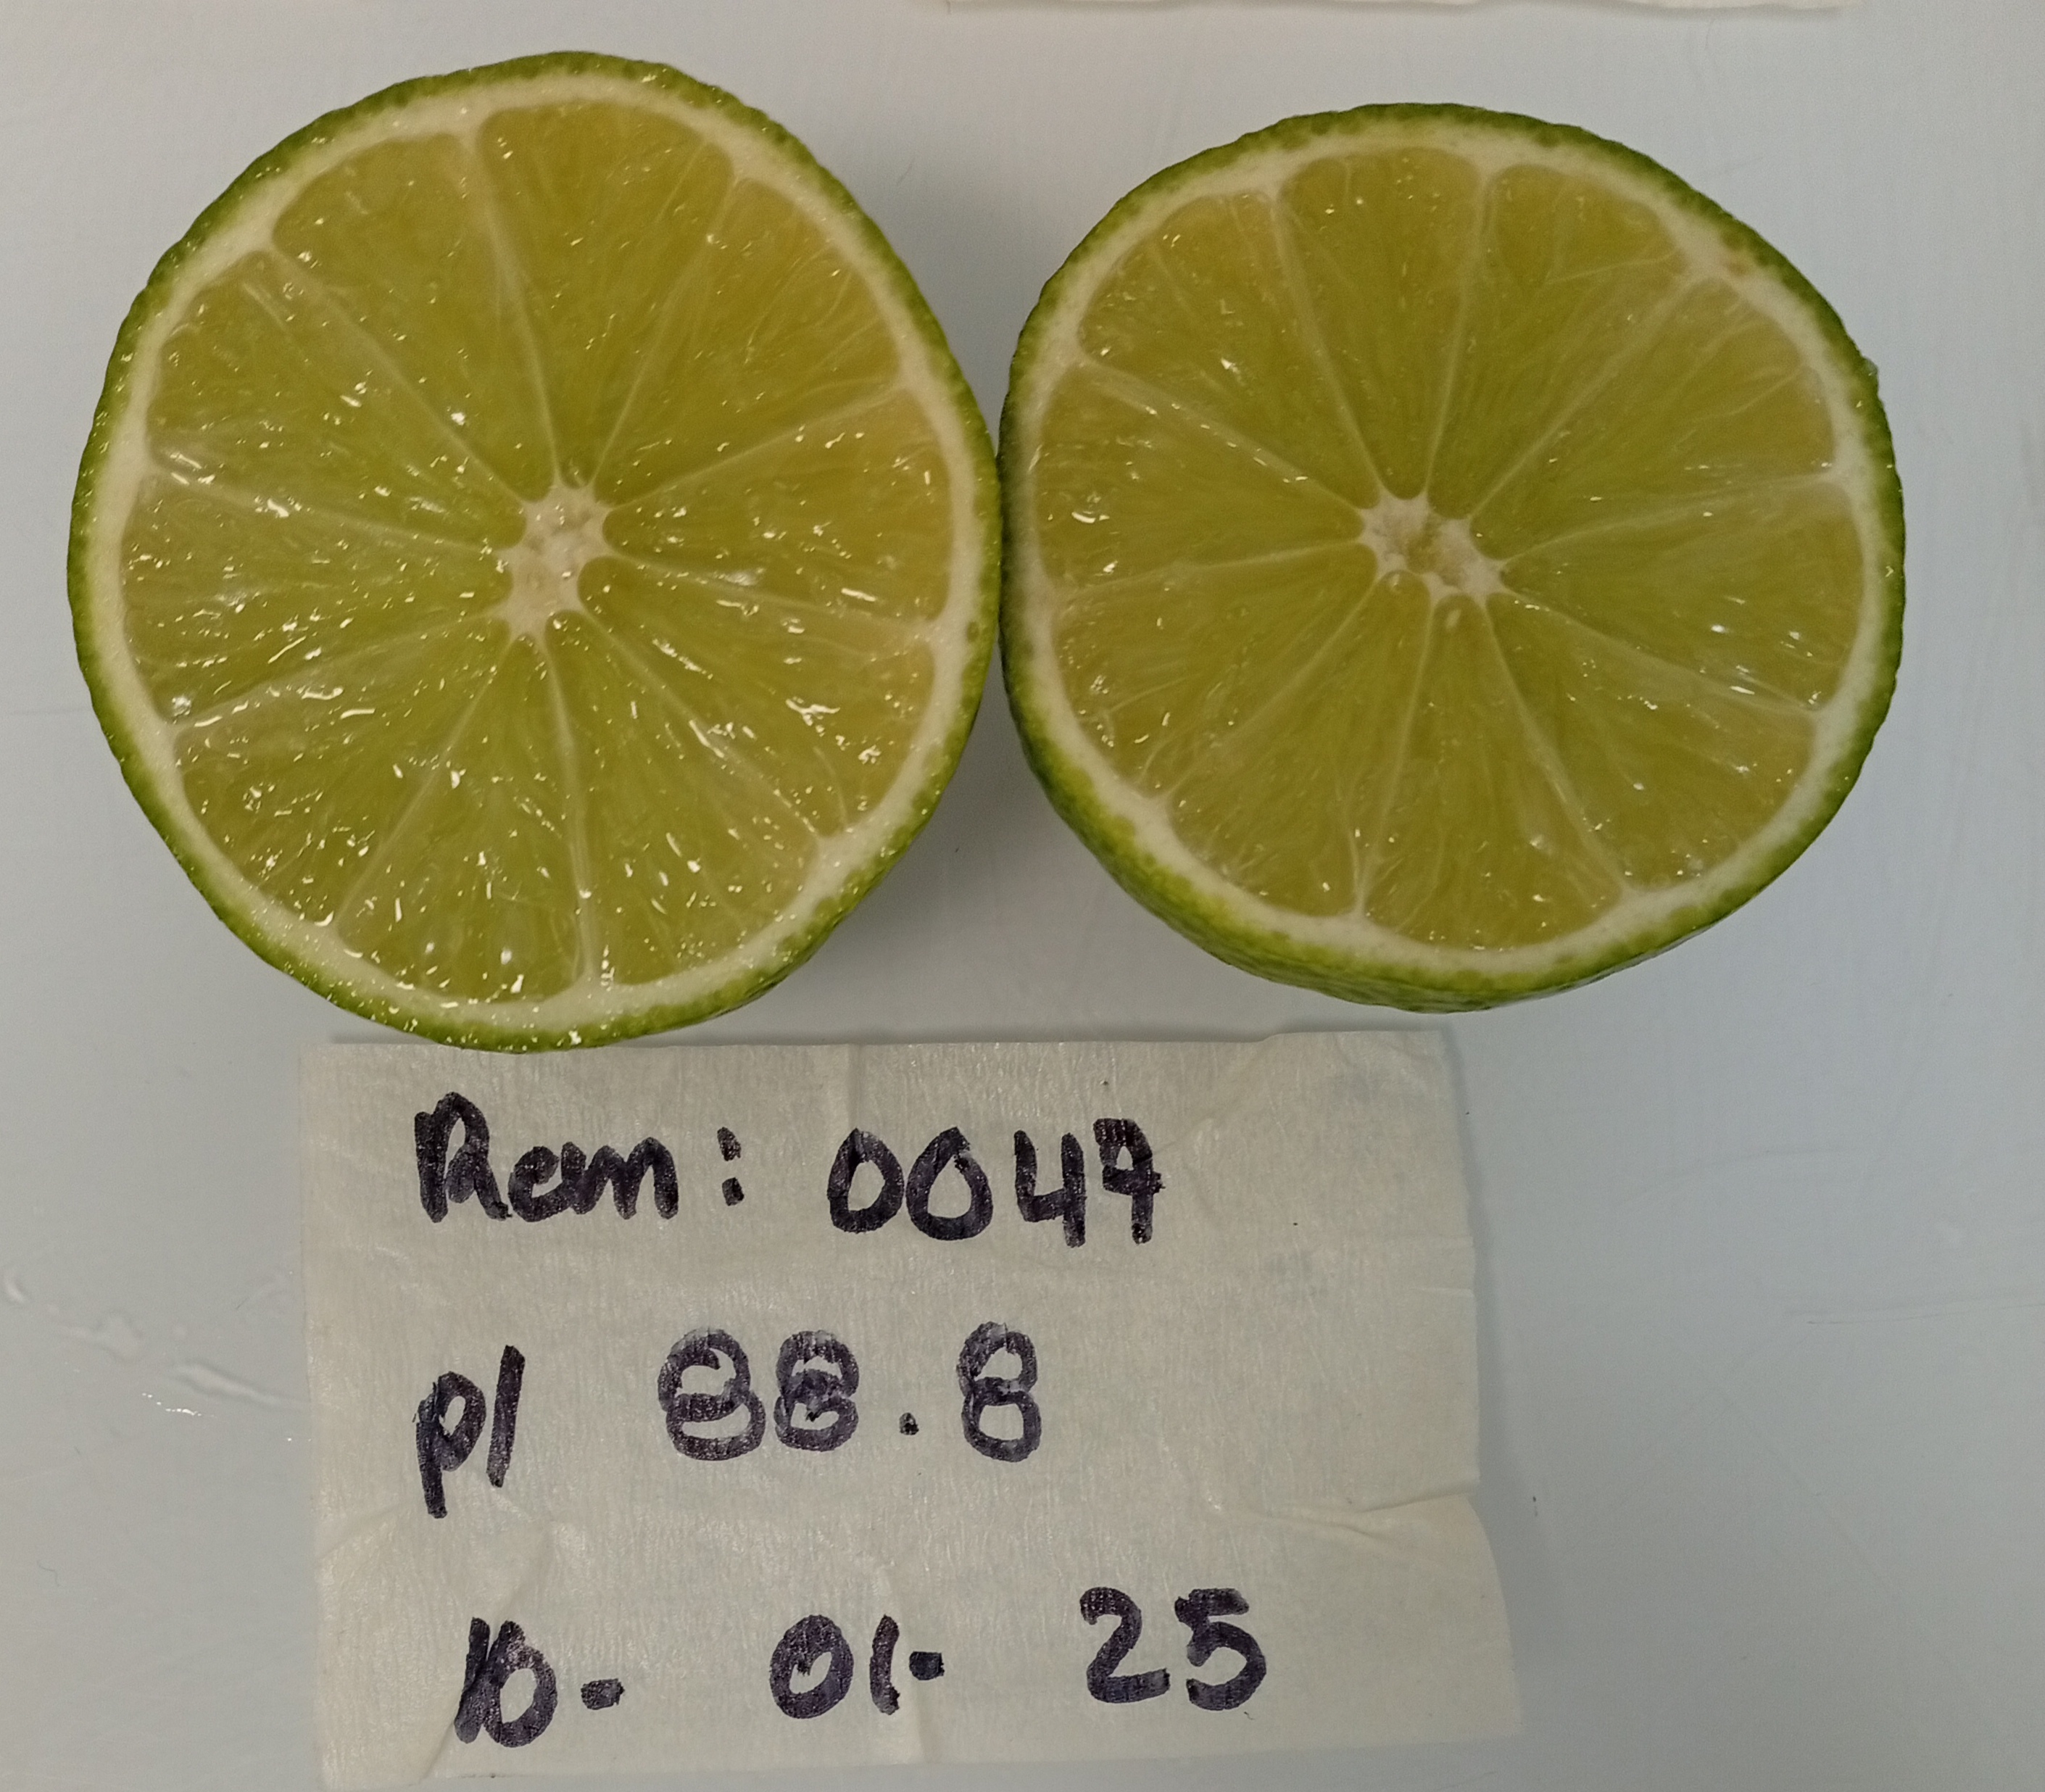 Rem: 0047
pl 88.8
10- 01- 25